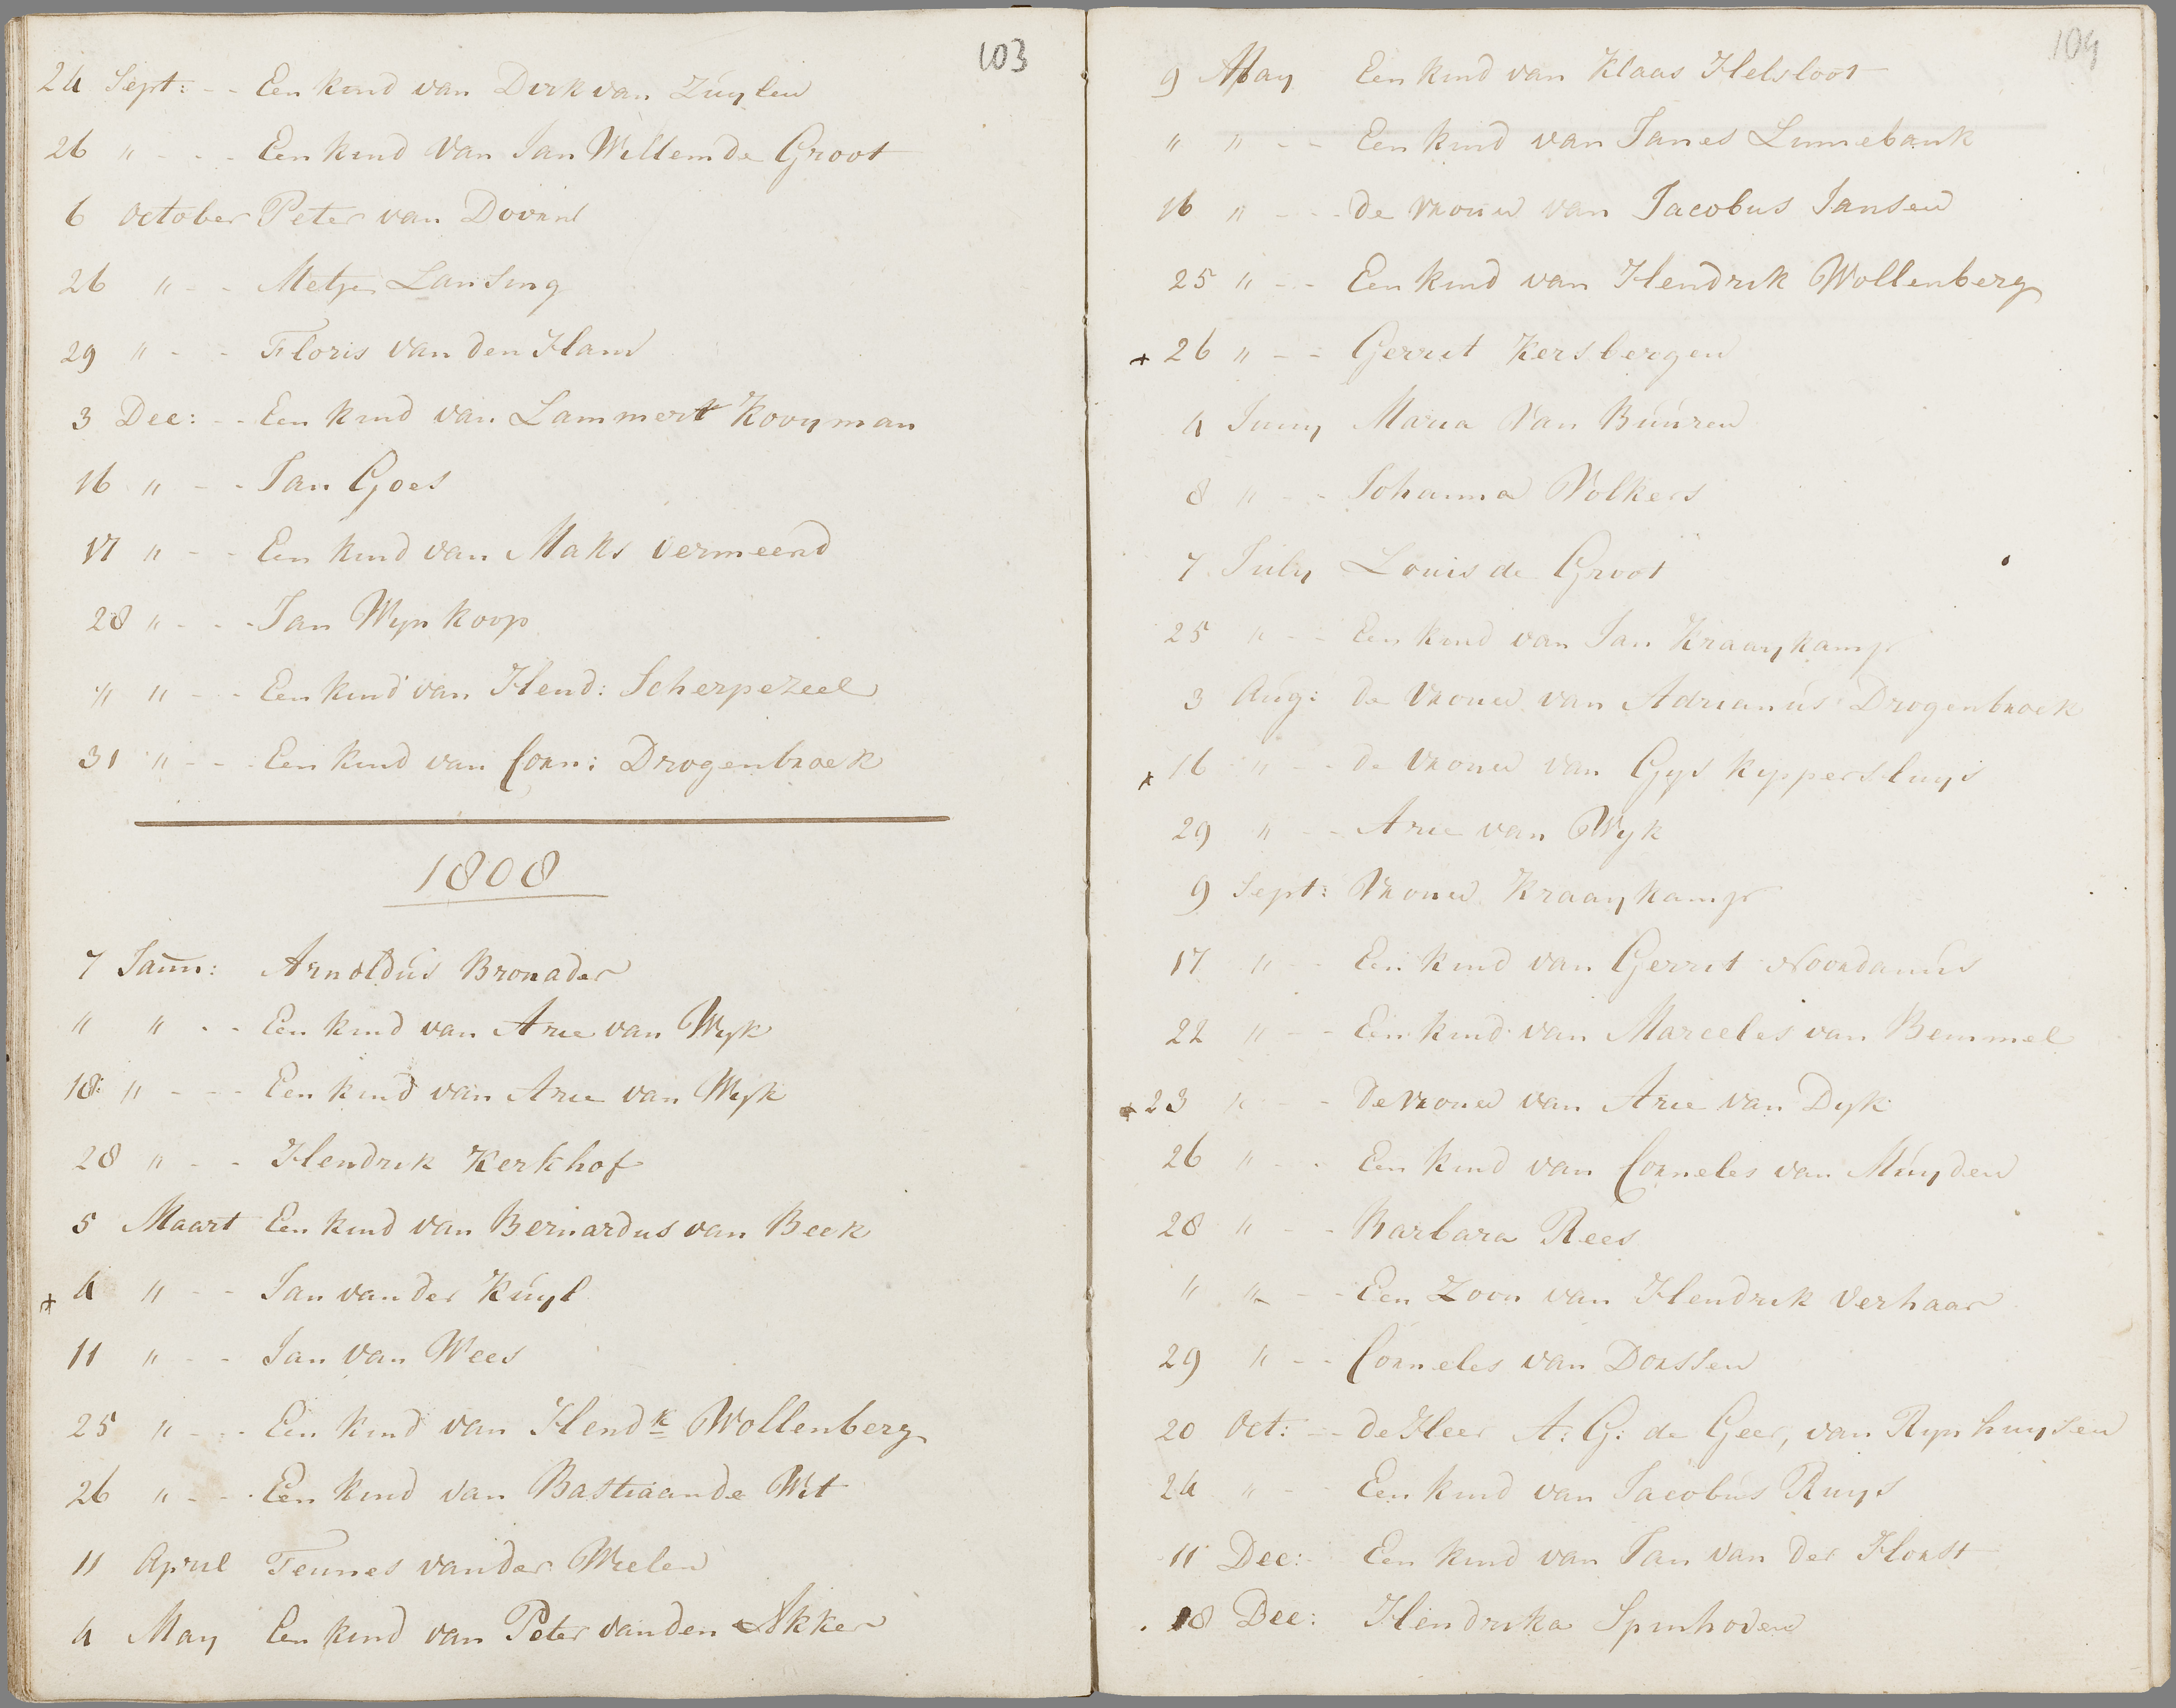 103
24 Sept: - - Een kind van Dirk van Zuylen
26 " - - - Een kind van Jan Willem de Groot
6 October Peter van Doorn
26 " - - Metje Lansing
29 " - - Floris van den Ham
3 Dec: - - Een kind van Lammert Kooyman
16 " - - Jan Goes
17 " - - Een kind van Maks Vermeend
28 " - - - Jan Wynkoop
" " - - - Een kind van Hend: Scherpezeel
31 " - - - Een kind van Corn: Drogenbroek
1808
7 Jann: Arnoldus Bronader
" " - - Een kind van Arie van Wyk
18 " - - - Een kind van Arie van Wyk
28 " - - Hendrik Kerkhof
5 Maart Een kind van Bernardus van Beek
* 4 " - - Jan van der Kuyl
11 " - - Jan van Wees
25 " - - - Een kind van Hendk Wollenberg
26 " - - - Een kind van Bastiaan de Wit
11 April Teunes van der Wielen
4 May Een kind van Peter van den Akker
104
9 May Een kind van Klaas Helsloot
" " - - Een kind van Janes Linnebank
16 " - - - de vrouw van Jacobus Jansen
25 " - - Een kind van Hendrik Wollenberg
* 26 " - - Gerrit Kersbergen
4 Juny Maria Van Buuren
8 " - - Johanna Volkers
7 July Louis de Groot
25 " - - Een kind van Jan Kraaykamp
3 Aug: de vrouw van Adrianus Drogenbroek
* 16 " - - de vrouw van Gys Kyppersluys
29 " - - Arie van Wyk
9 Sept: Vrouw Kraaykamp
17 " - - Een kind van Gerrit Noordanus
22 " - - Een kind van Marceles van Bemmel
* 23 " - - de vrouw van Arie van Dyk
26 " - - Een kind van Corneles van Muyden
28 " - - Barbara Rees
" " - - Een Zoon van Hendrik Verhaar
29 " - - Corneles van Dorssen
20 Oct: - - de Heer A: G: de Geer, van Rynhuysen
24 " - - Een kind van Jacobus Ruys
11 Dec: Een kind van Jan van der Horst
18 Dec: Hendrika Spinhoven